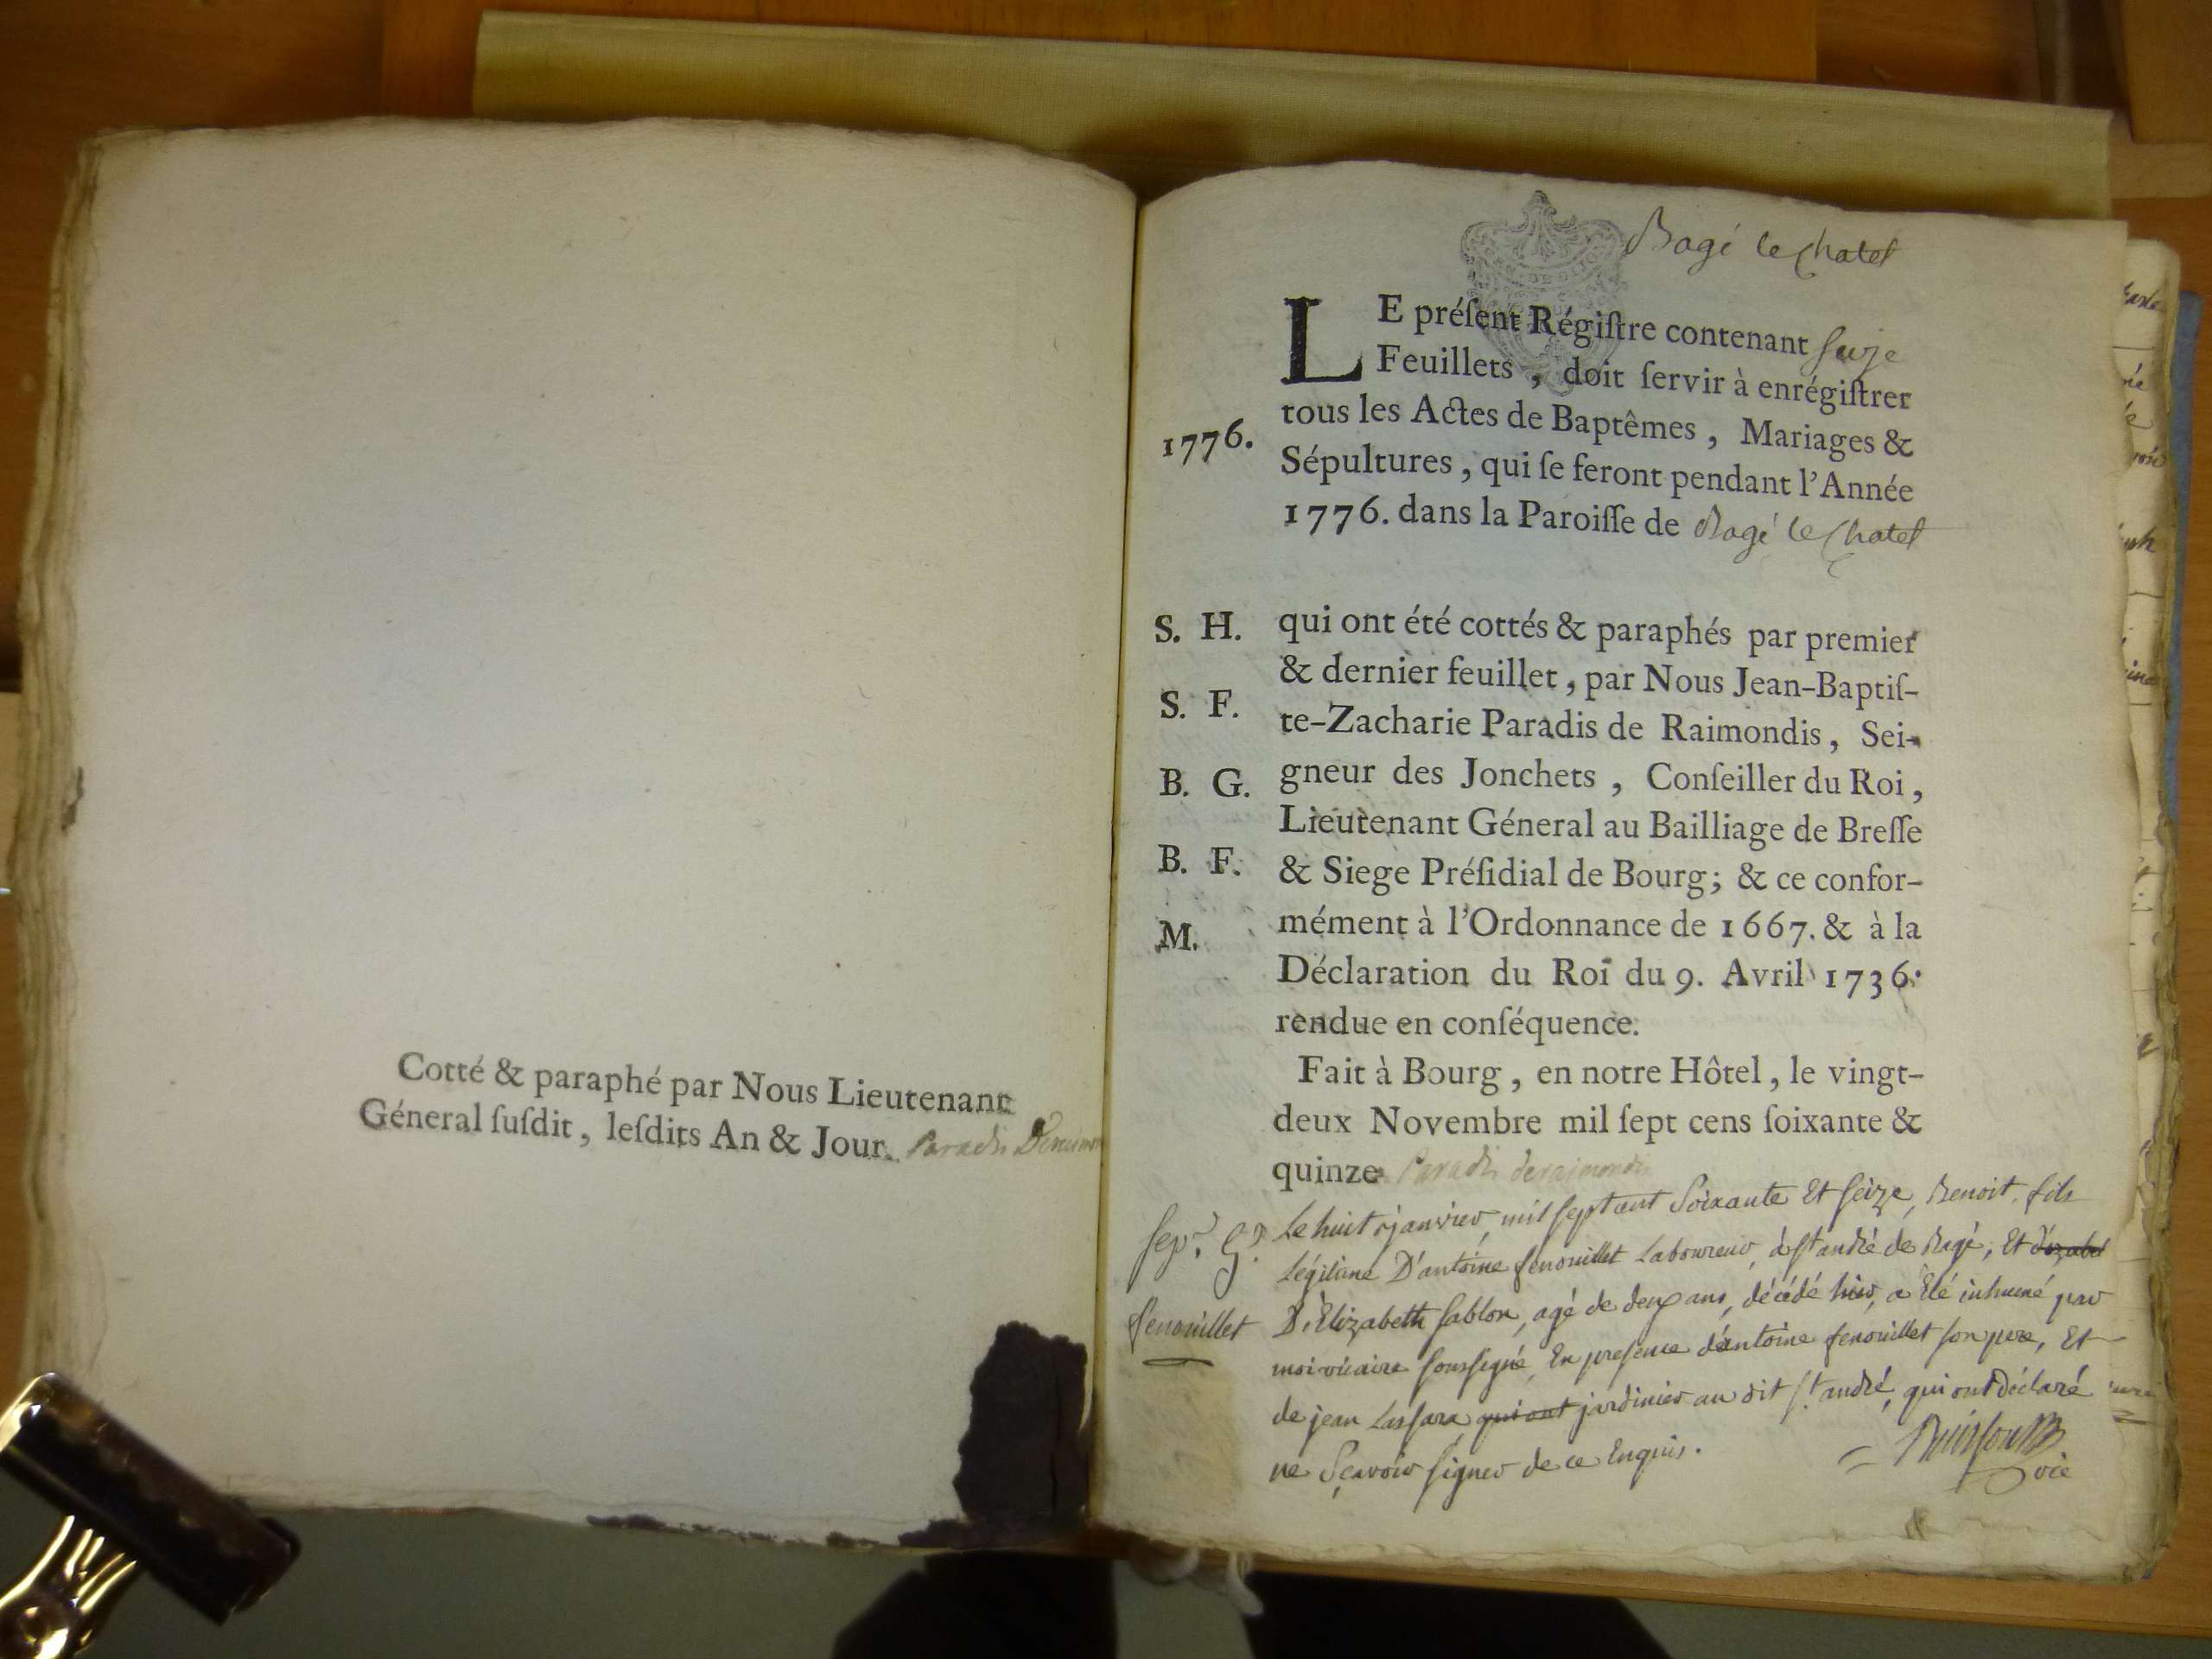 Cotté & paraphé par Nous Lieutenant
Géneral ſuſdit, leſdits An & Jour. Paradis Deraimon
Bagé le Chatel
LE préſent Régiſtre contenant Seize
Feuillets, doit ſervir à enrégiſtrer
tous les Actes de Baptêmes, Mariages &
1776.
Sépultures, qui ſe feront pendant l'Année
1776. dans la Paroiſſe de Bagé le Chatel
S. H.
qui ont été cottés & paraphés par premier
& dernier feuillet, par Nous Jean-Baptiſ-
S. F.
te-Zacharie Paradis de Raimondis, Sei-
B. G.
gneur des Jonchets, Conſeiller du Roi,
Lieutenant Géneral au Bailliage de Breſſe
B. F.
& Siege Préſidial de Bourg; & ce confor-
M.
mément à l'Ordonnance de 1667. & à la
Déclaration du Roi du 9. Avril 1736.
rendue en conſéquence.
Fait à Bourg, en notre Hôtel, le vingt-
deux Novembre mil ſept cens ſoixante &
quinze Paradis deraimondis
Sep.r G.
fenouillet
Le huit janvier, mil sept cent Soixante Et Seize, Benoit, fils
Légitime D'antoine fenouillet Laboureur, à St andré de Bagé, Et d'izabet
D'Elizabeth Sablon, agé de deux ans, décédé hier, a Eté inhumé par
moi vicaire soussigné, En presence d'antoine fenouillet son pere, Et
de jean Lassara qui ont jardinier au dit St. andré, qui ont déclaré
ne Sçavoir signer de ce Enquis.
vic